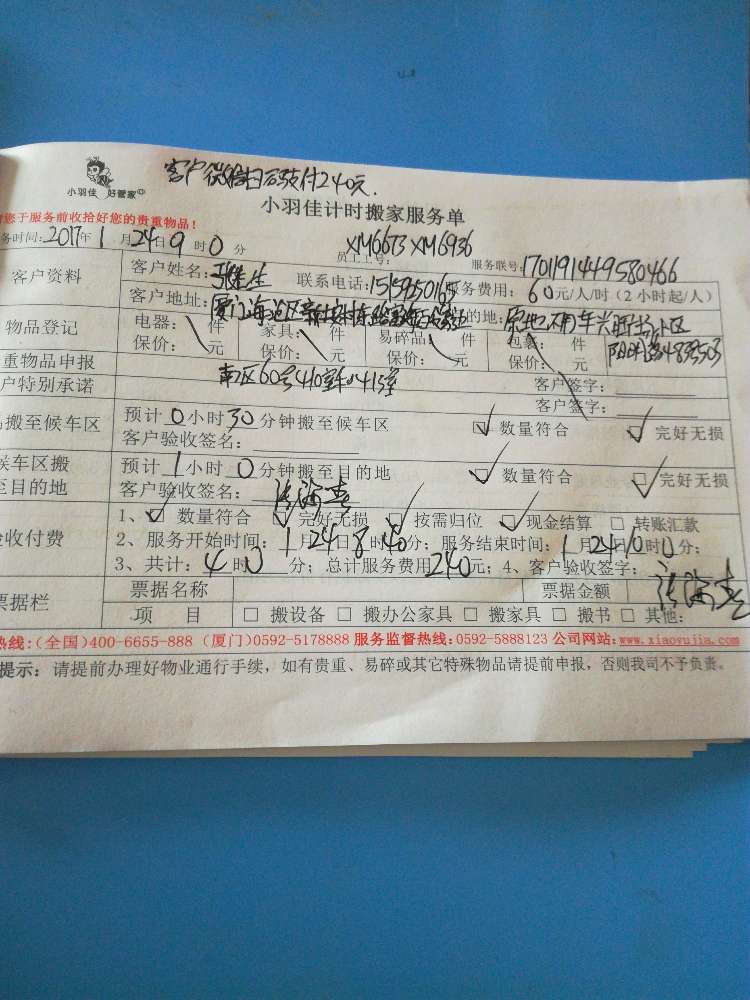 客户微信扫码支付240元.
小羽佳 好管家
小羽佳计时搬家服务单
您于服务前收拾好您的贵重物品！
务时间: 2017年1月24日9时0分 员工工号: XM6673 XM6936 服务联号: 1701191449580466
客户资料 客户姓名: 张先生 联系电话: 服务费用: 60元/人/时（2小时起/人）
客户地址: 厦门海沧区 的地:
物品登记 电器: 件 家具: 件 易碎品: 件 包裹: 件
保价: 元 保价: 元 保价: 元 保价: 元
重物品申报 南区60号
户特别承诺 客户签字:
客户签字:
搬至候车区 预计0小时30分钟搬至候车区 ☑ 数量符合 ☑ 完好无损
客户验收签名:
候车区搬 预计1小时0分钟搬至目的地 ☑ 数量符合 ☑ 完好无损
至目的地 客户验收签名:
验收付费 1、☑ 数量符合 ☑ 完好无损 ☑ 按需归位 ☑ 现金结算 □ 转账汇款
2、服务开始时间: 1月24日8时40分; 服务结束时间: 1月24日10时0分;
3、共计: 4时0分; 总计服务费用240元; 4、客户验收签字:
票据栏 票据名称 票据金额
项 目 □ 搬设备 □ 搬办公家具 □ 搬家具 □ 搬书 □ 其他:
热线:(全国)400-6655-888 (厦门)0592-5178888 服务监督热线:0592-5888123 公司网站:www.xiaoyujia.com
提示: 请提前办理好物业通行手续，如有贵重、易碎或其它特殊物品请提前申报，否则我司不予负责。